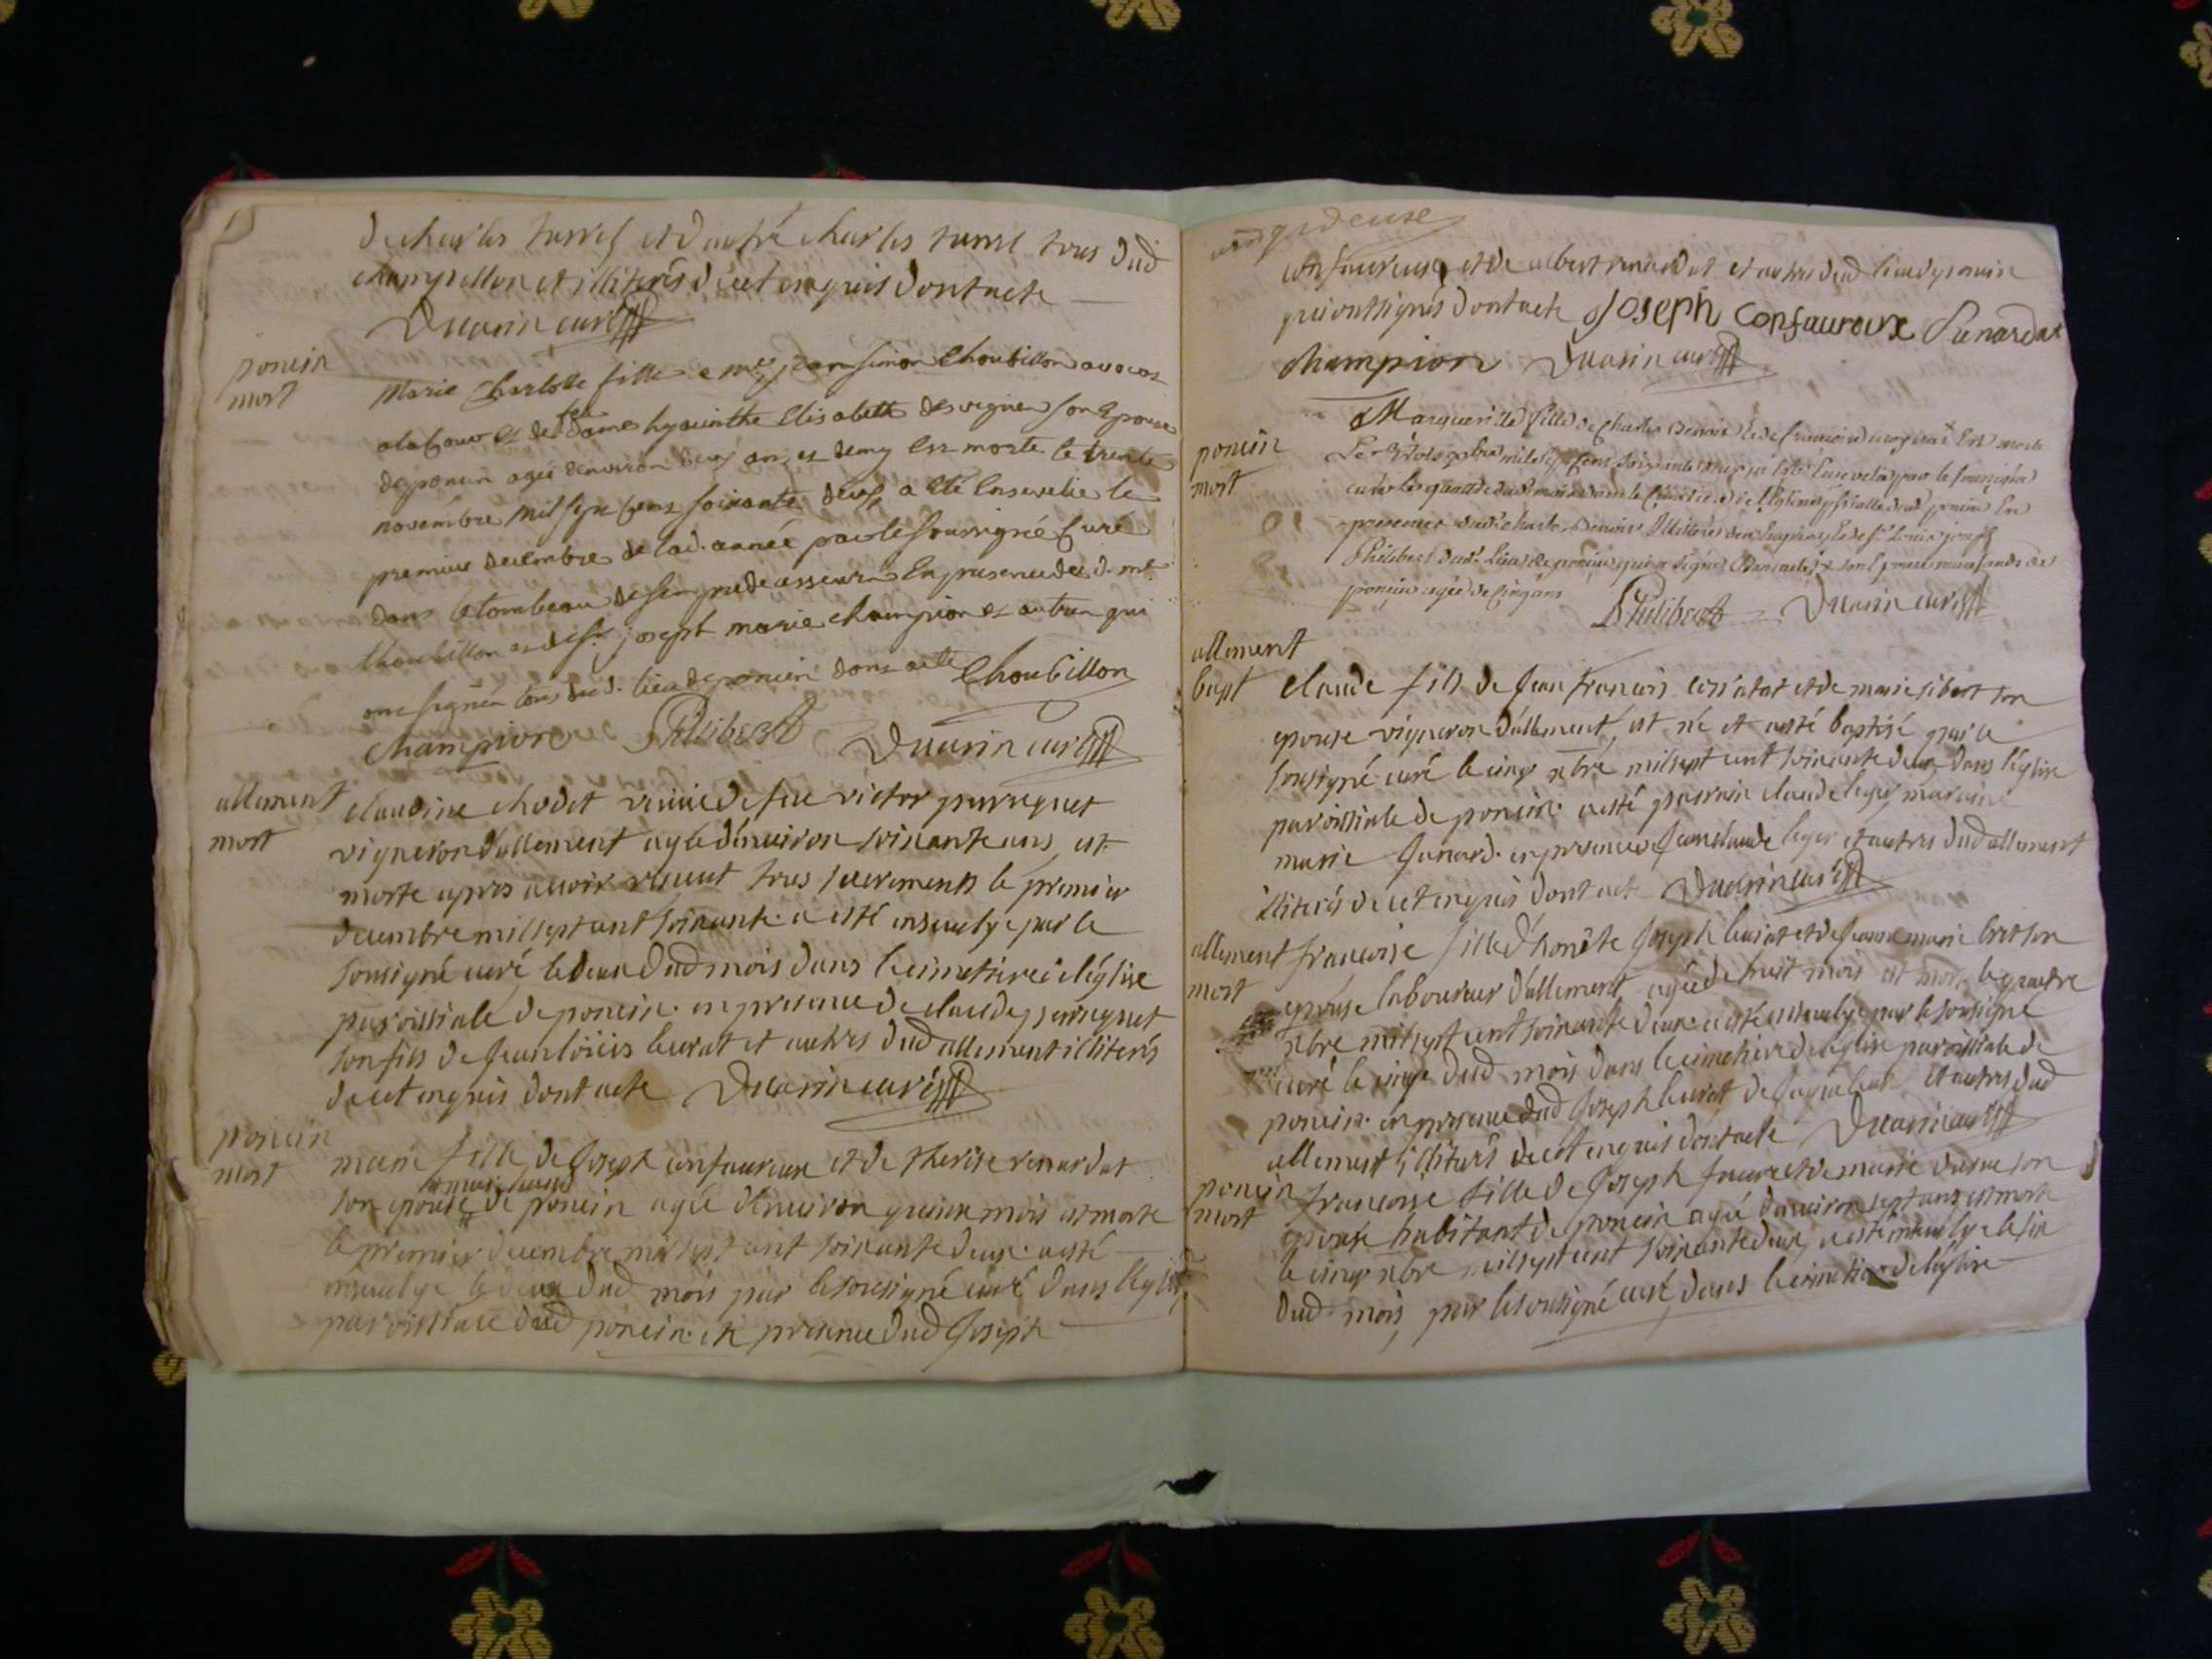 de charles turrel et dautre charles turrel tous dud
champillon et illiterés de cet enquis dont acte
Duarin curé
poncin
mort
Marie Charlotte fille a me jean simon Choubillon avocat
a la Cour et de feu dame hyacinthe Elisabeth desvignes son Epouse
de poncin agée denviron deux ans et demy est morte le trente
novembre mil sept cens soixante deux a été Ensevelie le
premier decembre de lad. année par le soussigné Curé
dans le tombeau de ses predecesseurs En presence dud. mt.
Choubillon et de sr. joseph marie champion et autres qui
ont signés tous dud. lieu de poncin dont acte Choubillon
champion Philibert Duarin curé
allement
mort
claudine chodet veuve de feu victor perruquet
vigneron dallement agée denviron soixante ans est
morte apres avoir recut tous sacrements le premier
decembre mil sept cent soixante a esté ensevelye par le
sousigné curé le deux dud mois dans le cimetiere de léglise
paroissiale de poncin. en presence de claude perruquet
son fils de jean loüis levrat et autres dud allement illiterés
de cet enquis dont acte Duarin curé
poncin
mort
marie fille de joseph confaureux et de therese renardat
son epouse de poncin agée denviron quinze mois est morte
le premier decembre mil sept cent soixante deux. a esté
ensevelye le deux dud mois par le sousigné curé dans leglise
paroissiale dud poncin. en presence dud joseph
confaureux et de albert renardat et autres dud lieu de poncin
qui ont signés dont acte Joseph Confauroux Renardat
champion Duarin curé
poncin
mort
Margueritte fille de Charles Benoir et de Est morte
Le trois xbre mil sept cens soixante deux a Esté Ensevelie par le soussigné
curé Le quatre dud mois dans le Cimetiere de l'Eglise dud poncin En
presence dud Charles Benoir Illitere de ce Enquis et de sr Louis joseph
Philibert dud. Lieu de poncin qui a signé
poncin agée de Cinq ans Philibert Duarin curé
allement
bapt
claude fils de jean francois et de marie sibert son
epouse vigneron dallement, est né et a esté baptisé par le
sousigné curé le cinq xbre mil sept cent soixante deux dans léglise
paroissiale de poncin. a esté parrain claude leger, maraine
marie junard. en presence de jean claude leger et autres dud allement
illiterés de cet enquis dont acte Duarin curé
allement
mort
francoise fille d'honête joseph levrat et de jeanne marie bret son
epouse laboureur dallement agée de huit mois est morte le quatre
xbre mil sept cent soixante deux. a esté ensevelye par le sousigné
curé le cinq dud mois dans le cimetiere de leglise paroissiale de
poncin. en presence dud joseph levrat de et autres dud
allement illiterés de cet enquis dont acte Duarin curé
poncin
mort
francoise fille de joseph faure et de marie son
epouse habitant de poncin agée denviron sept ans est morte
le cinq xbre mil sept cent soixante deux, a esté ensevelye le six
dud. mois, par le sousigné curé, dans le cimetiere de leglise